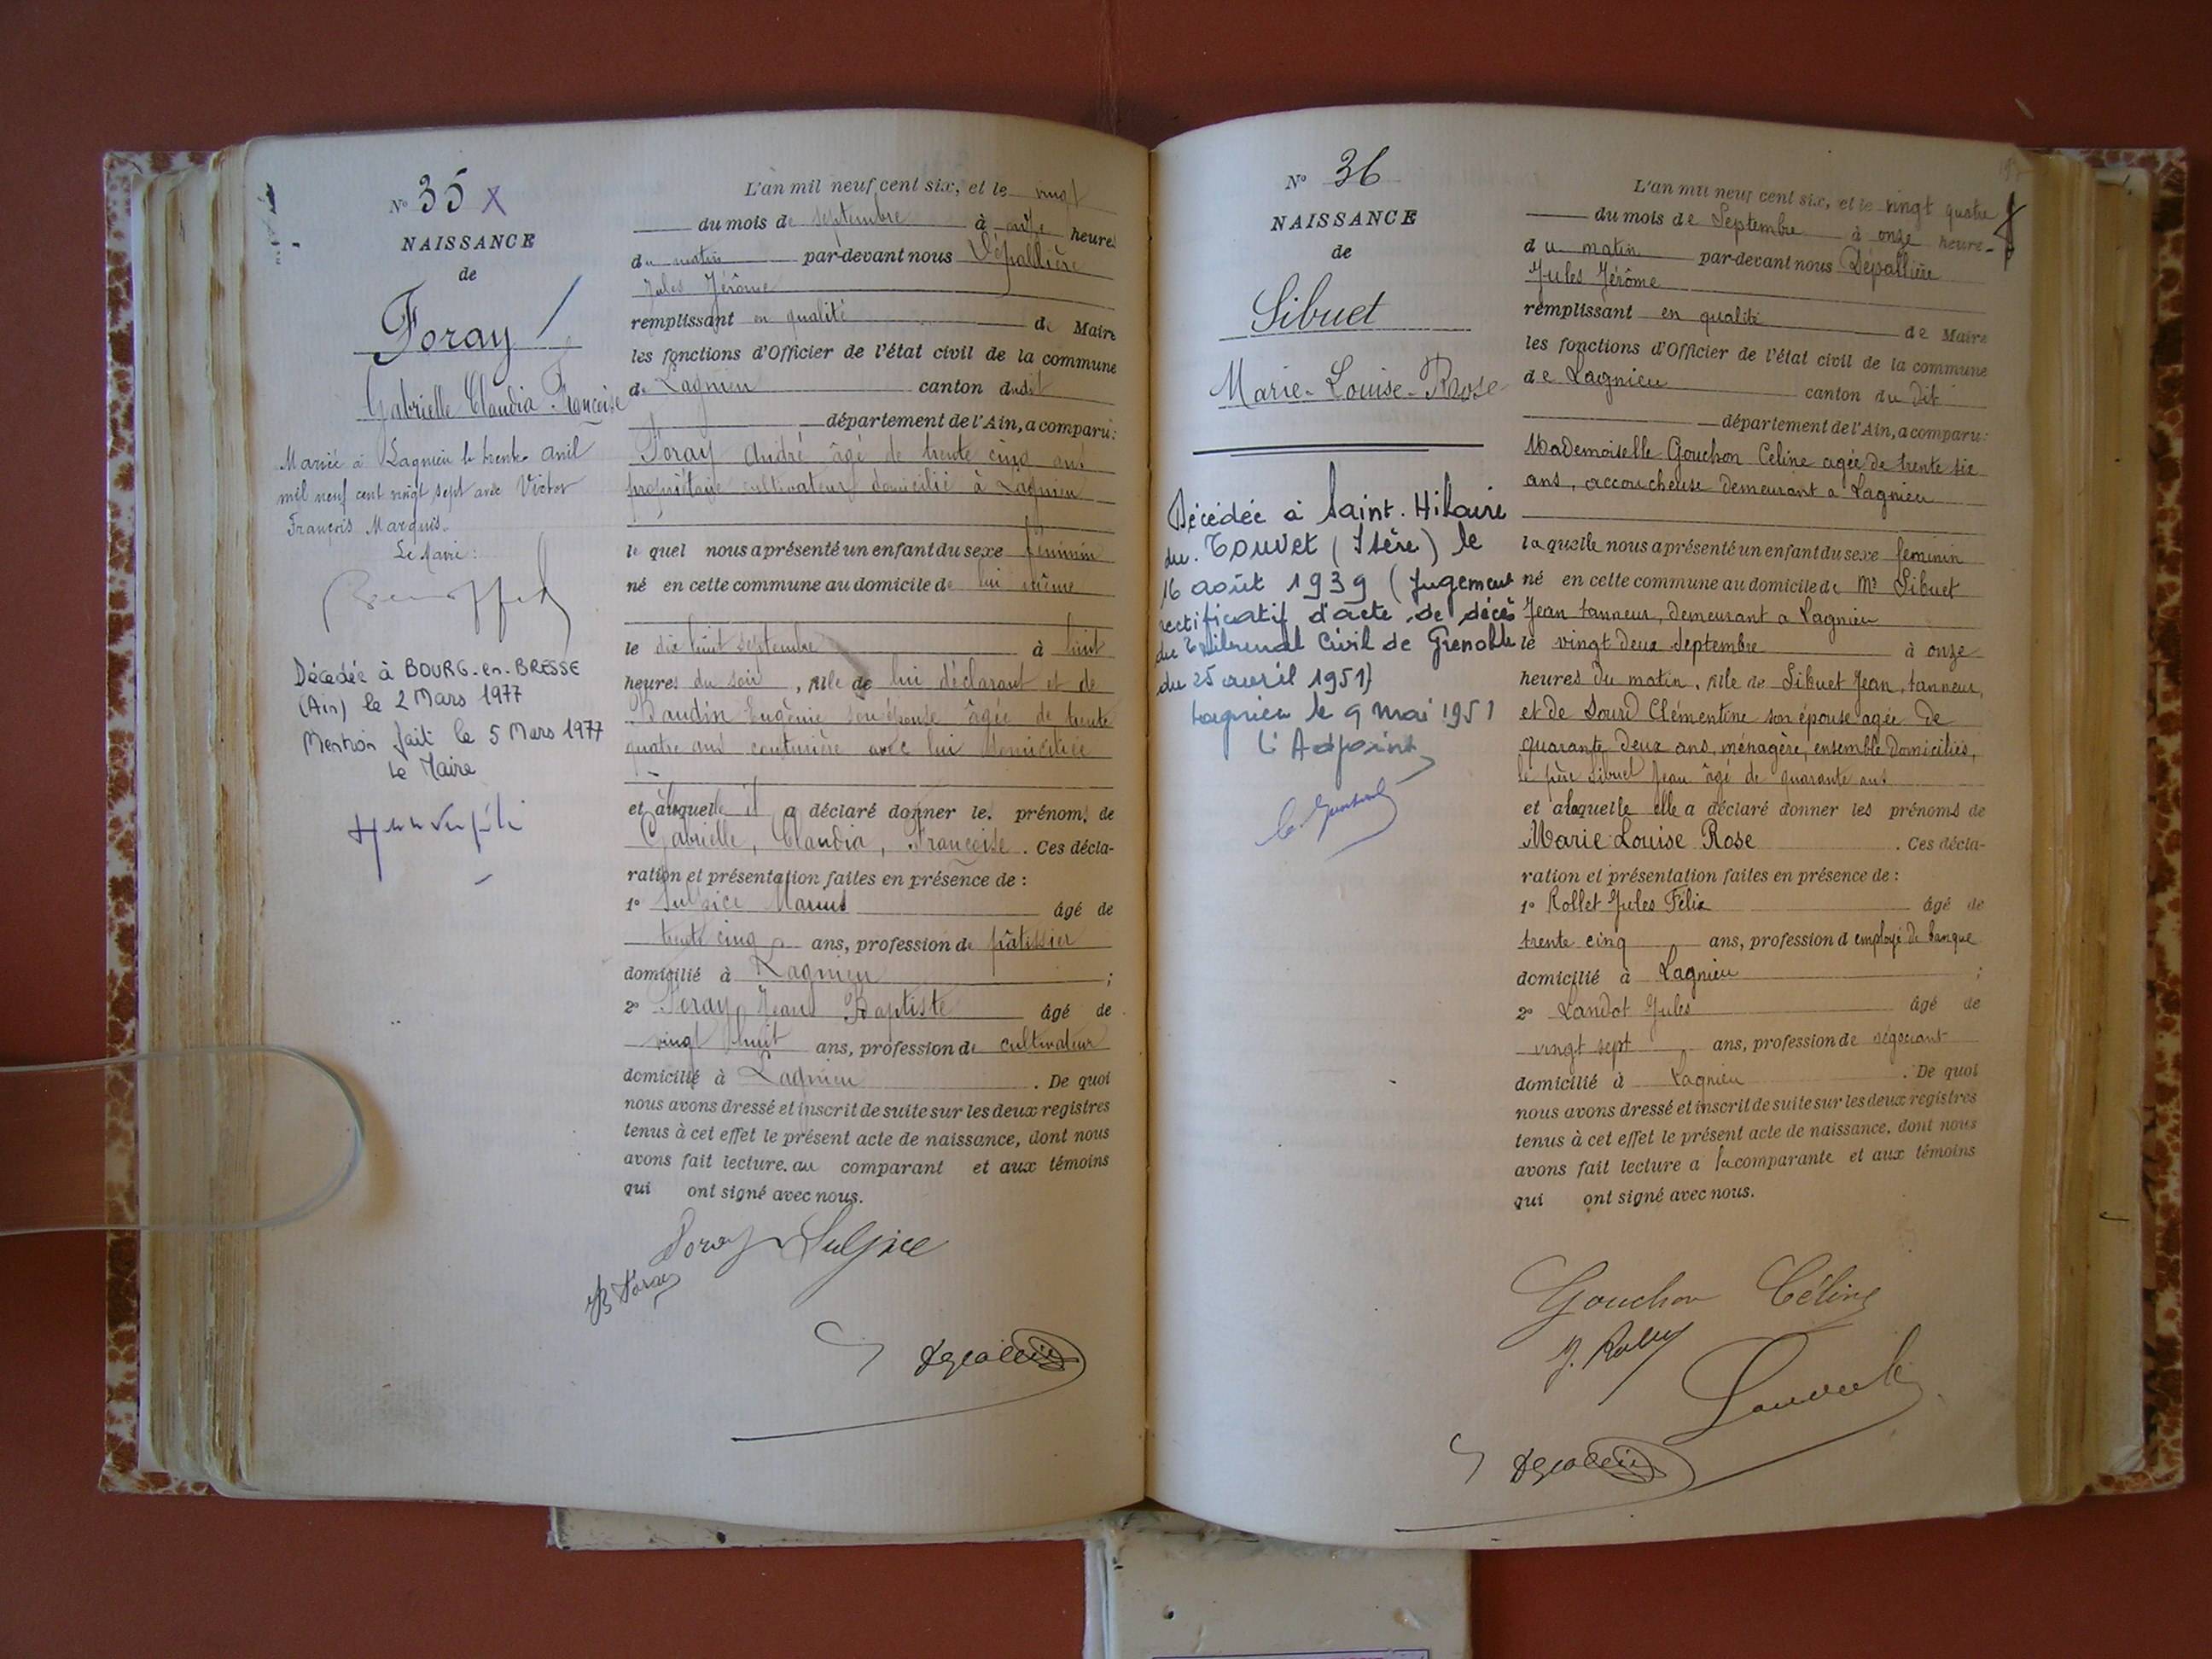 N° 35 X
NAISSANCE
de
Foray
Gabrielle Claudia Françoise
Mariée à Lagnieu le trente avril
mil neuf cent vingt sept avec Victor
François Marquis.
Le Maire :
Décédée à BOURG-en-BRESSE
(Ain) le 2 Mars 1977
Mention fait le 5 Mars 1977
Le Maire
L'an mil neuf cent six, et le vingt
du mois de septembre à onze heures
du matin par-devant nous Dépallière
Jules Jérôme
remplissant en qualité de Maire
les fonctions d'Officier de l'état civil de la commune
de Lagnieu canton dudit
département de l'Ain, a comparu :
Foray André âgé de trente cinq ans
propriétaire cultivateur domicilié à Lagnieu
lequel nous a présenté un enfant du sexe féminin
né en cette commune au domicile de lui même
le dix huit septembre à huit
heures du soir, fille de lui déclarant et de
Baudin Eugénie son épouse âgée de trente
quatre ans couturière avec lui domiciliée
et à laquelle il a déclaré donner les prénoms de
Gabrielle, Claudia, Françoise. Ces décla-
ration et présentation faites en présence de :
1° Sulpice Marius âgé de
trente cinq ans, profession de pâtissier
domicilié à Lagnieu ;
2° Foray Jean Baptiste âgé de
vingt huit ans, profession de cultivateur
domicilié à Lagnieu. De quoi
nous avons dressé et inscrit de suite sur les deux registres
tenus à cet effet le présent acte de naissance, dont nous
avons fait lecture au comparant et aux témoins
qui ont signé avec nous.
Foray Sulpice
JB Foray
N° 36
NAISSANCE
de
Sibuet
Marie-Louise-Rose
Décédée à Saint-Hilaire
du Touvet (Isère) le
16 août 1939 (Jugement
rectificatif d'acte de décès
du Tribunal Civil de Grenoble
du 25 avril 1951)
Lagnieu le 9 mai 1951
L'Adjoint
L'an mil neuf cent six, et le vingt quatre
du mois de Septembre à onze heures
du matin par-devant nous Dépallière
Jules Jérôme
remplissant en qualité de Maire
les fonctions d'Officier de l'état civil de la commune
de Lagnieu canton du dit
département de l'Ain, a comparu :
Mademoiselle Gouchon Céline agée de trente six
ans, accoucheuse demeurant a Lagnieu
laquelle nous a présenté un enfant du sexe feminin
né en cette commune au domicile de Mr Sibuet
Jean tanneur, demeurant a Lagnieu
le vingt deux septembre à onze
heures du matin, fille de Sibuet Jean, tanneur,
et de Sourd Clémentine son épouse agée de
quarante deux ans, ménagère, ensemble domiciliés,
le père Sibuet Jean âgé de quarante ans
et a laquelle elle a déclaré donner les prénoms de
Marie Louise Rose. Ces décla-
ration et présentation faites en présence de :
1° Rollet Jules Félix âgé de
trente cinq ans, profession d employé de banque
domicilié à Lagnieu ;
2° Landot Jules âgé de
vingt sept ans, profession de négociant
domicilié à Lagnieu. De quoi
nous avons dressé et inscrit de suite sur les deux registres
tenus à cet effet le présent acte de naissance, dont nous
avons fait lecture a la comparante et aux témoins
qui ont signé avec nous.
Gouchon Céline